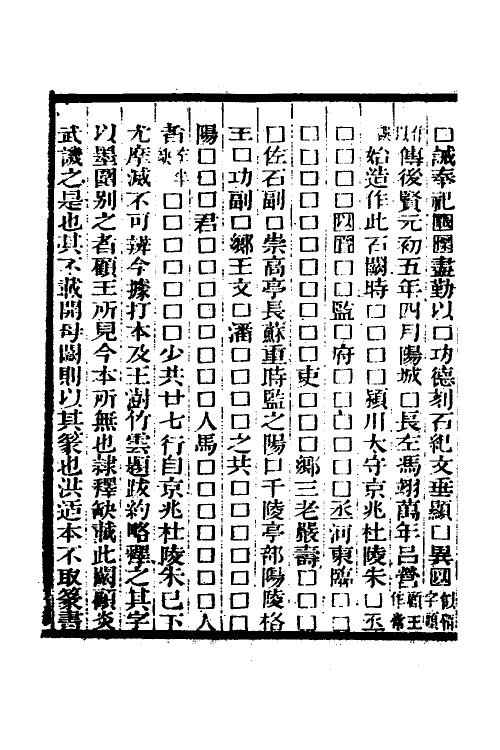 □誠奉祀盡勤以□功德刻石紀文垂顯□異
傳後賢元初五年四月陽城□長左馮翊萬年呂營顧王作常
誤始造作此石闕時□□□□潁川太守京兆杜陵朱□丞
□□□□四□□監□府□□□□□□丞河東臨□□
□□□□□□□□□□吏□□□鄉三老嚴壽□□
□佐石副□崇高亭長蘇重時監之陽□千陵亭部陽陵格
王□功副□鄉王文□潘□□□□之共□□□□□□
陽□□□君□□□□□□□□□人馬□□□□□□人
者字半缺□□□□□□□□少共廿七行自京兆杜陵朱已下
尤摩滅不可辨今據打本及王澍竹雲題跋約略釋之其字
以墨圍別之者顧王所見今本所無也隸釋缺載此闕顧炎
武譏之是也其不載開母闕則以其篆也洪适本不取篆書